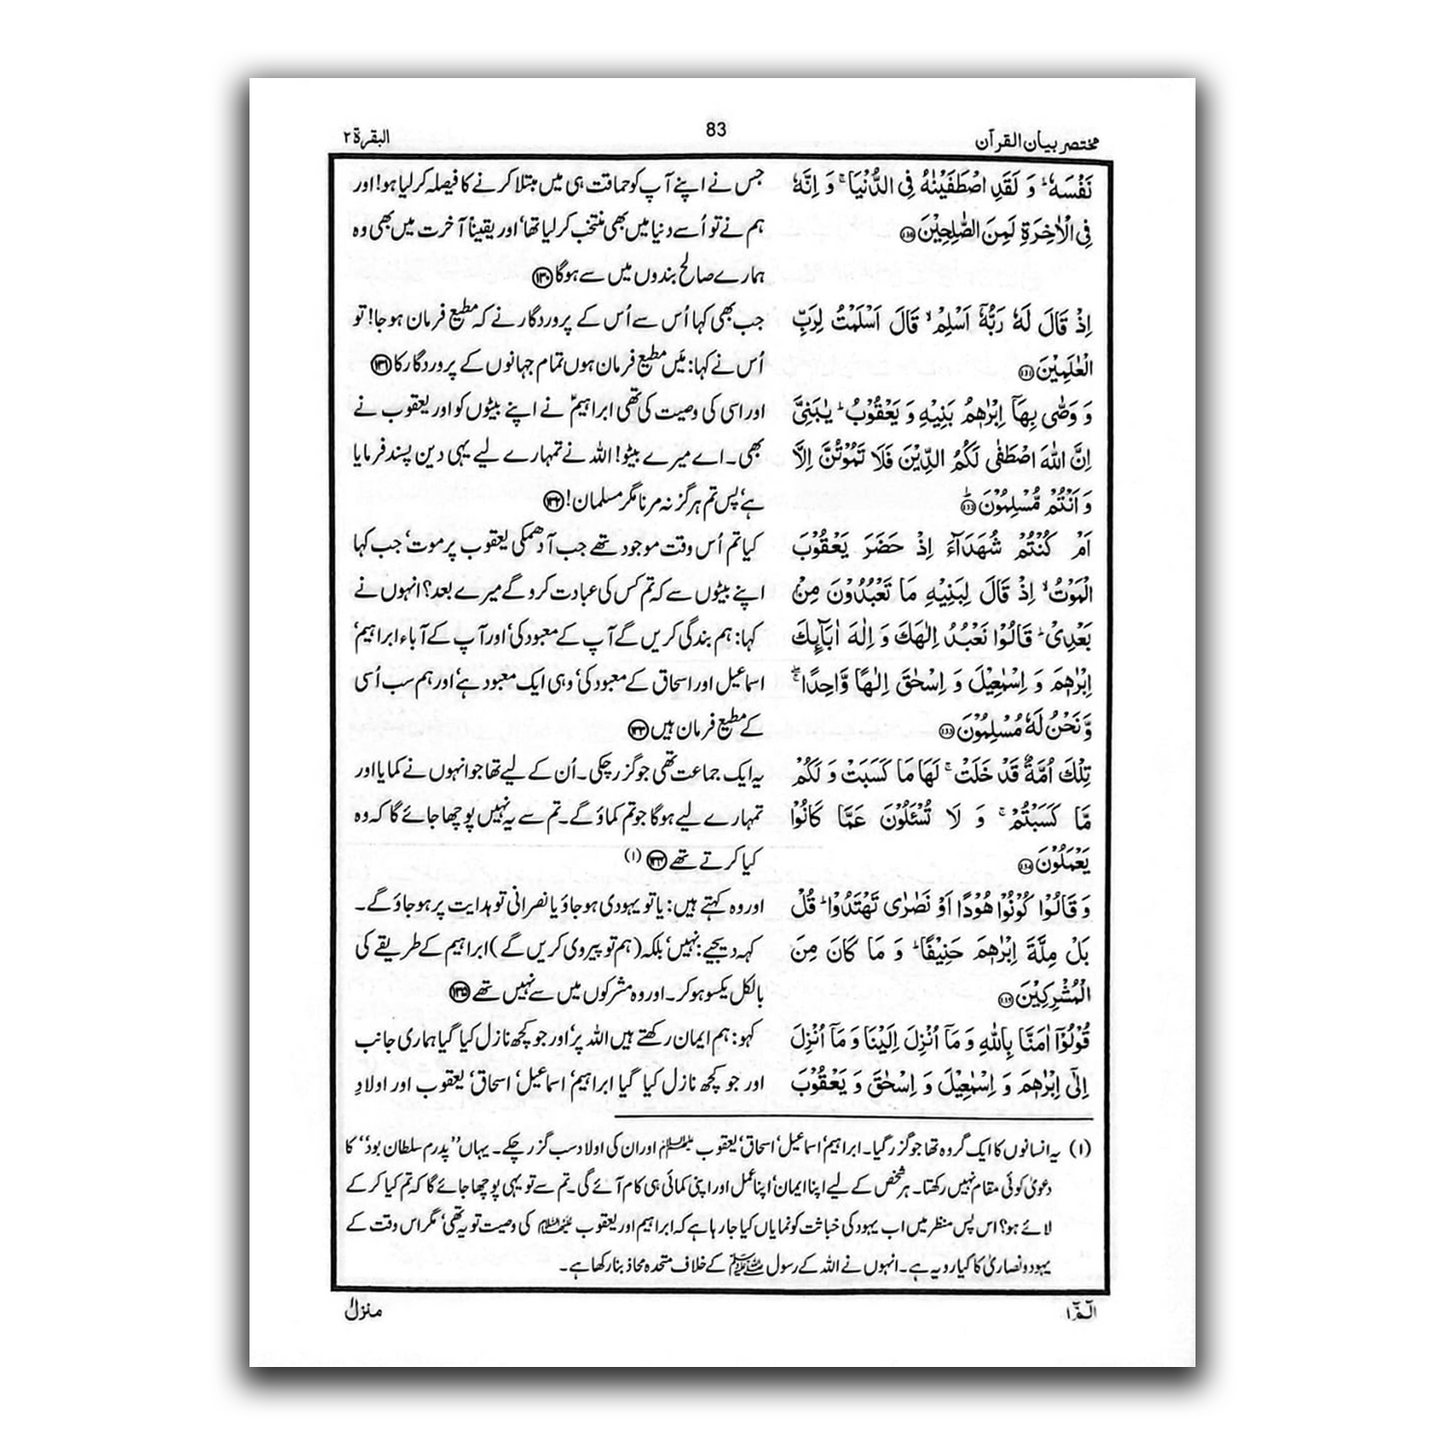 مختصر بیان القرآن
83
البقرۃ ۲
نَفْسَهٗ ؕ وَ لَقَدِ اصْطَفَيْنٰهُ فِی الدُّنْيَا ۚ وَ اِنَّهٗ
فِی الْاٰخِرَةِ لَمِنَ الصّٰلِحِيْنَ ﴿۱۳۰﴾
اِذْ قَالَ لَهٗ رَبُّهٗۤ اَسْلِمْ ۙ قَالَ اَسْلَمْتُ لِرَبِّ
الْعٰلَمِيْنَ ﴿۱۳۱﴾
وَ وَصّٰی بِهَاۤ اِبْرٰهٖمُ بَنِيْهِ وَ يَعْقُوْبُ ؕ يٰبَنِیَّ
اِنَّ اللّٰهَ اصْطَفٰی لَكُمُ الدِّيْنَ فَلَا تَمُوْتُنَّ اِلَّا
وَ اَنْتُمْ مُّسْلِمُوْنَ ﴿۱۳۲﴾ؕ
اَمْ كُنْتُمْ شُهَدَآءَ اِذْ حَضَرَ يَعْقُوْبَ
الْمَوْتُ ۙ اِذْ قَالَ لِبَنِيْهِ مَا تَعْبُدُوْنَ مِنْۢ
بَعْدِیْ ؕ قَالُوْا نَعْبُدُ اِلٰهَكَ وَ اِلٰهَ اٰبَآىِٕكَ
اِبْرٰهٖمَ وَ اِسْمٰعِيْلَ وَ اِسْحٰقَ اِلٰهًا وَّاحِدًا ۚۖ
وَّ نَحْنُ لَهٗ مُسْلِمُوْنَ ﴿۱۳۳﴾
تِلْكَ اُمَّةٌ قَدْ خَلَتْ ۚ لَهَا مَا كَسَبَتْ وَ لَكُمْ
مَّا كَسَبْتُمْ ۚ وَ لَا تُسْـَٔلُوْنَ عَمَّا كَانُوْا
يَعْمَلُوْنَ ﴿۱۳۴﴾
وَ قَالُوْا كُوْنُوْا هُوْدًا اَوْ نَصٰرٰی تَهْتَدُوْا ؕ قُلْ
بَلْ مِلَّةَ اِبْرٰهٖمَ حَنِيْفًا ؕ وَ مَا كَانَ مِنَ
الْمُشْرِكِيْنَ ﴿۱۳۵﴾
قُوْلُوْۤا اٰمَنَّا بِاللّٰهِ وَ مَاۤ اُنْزِلَ اِلَيْنَا وَ مَاۤ اُنْزِلَ
اِلٰۤی اِبْرٰهٖمَ وَ اِسْمٰعِيْلَ وَ اِسْحٰقَ وَ يَعْقُوْبَ
جس نے اپنے آپ کو حماقت ہی میں مبتلا کرنے کا فیصلہ کر لیا ہو! اور
ہم نے تو اُسے دنیا میں بھی منتخب کر لیا تھا‘ اور یقیناً آخرت میں بھی وہ
ہمارے صالح بندوں میں سے ہو گا ﴿۱۳۰﴾
جب بھی کہا اُس سے اُس کے پروردگار نے کہ مطیع فرمان ہو جا! تو
اُس نے کہا: میں مطیع فرمان ہوں تمام جہانوں کے پروردگار کا ﴿۱۳۱﴾
اور اسی کی وصیت کی تھی ابراہیمؑ نے اپنے بیٹوں کو اور یعقوب نے
بھی۔ اے میرے بیٹو! اللہ نے تمہارے لیے یہی دین پسند فرمایا
ہے‘ پس تم ہرگز نہ مرنا مگر مسلمان! ﴿۱۳۲﴾
کیا تم اُس وقت موجود تھے جب آ دھمکی یعقوب پر موت‘ جب کہا
اپنے بیٹوں سے کہ تم کس کی عبادت کرو گے میرے بعد؟ انہوں نے
کہا: ہم بندگی کریں گے آپ کے معبود کی‘ اور آپ کے آباء ابراہیم‘
اسماعیل اور اسحاق کے معبود کی‘ وہی ایک معبود ہے‘ اور ہم سب اُسی
کے مطیع فرمان ہیں ﴿۱۳۳﴾
یہ ایک جماعت تھی جو گزر چکی۔ اُن کے لیے تھا جو انہوں نے کمایا اور
تمہارے لیے ہو گا جو تم کماؤ گے۔ تم سے یہ نہیں پوچھا جائے گا کہ وہ
کیا کرتے تھے ﴿۱۳۴﴾ (۱)
اور وہ کہتے ہیں: یا تو یہودی ہو جاؤ یا نصرانی تو ہدایت پر ہو جاؤ گے۔
کہہ دیجیے: نہیں‘ بلکہ (ہم تو پیروی کریں گے) ابراہیم کے طریقے کی
بالکل یکسو ہو کر۔ اور وہ مشرکوں میں سے نہیں تھے ﴿۱۳۵﴾
کہو: ہم ایمان رکھتے ہیں اللہ پر‘ اور جو کچھ نازل کیا گیا ہماری جانب
اور جو کچھ نازل کیا گیا ابراہیم‘ اسماعیل‘ اسحاق‘ یعقوب اور اولادِ
(۱) یہ انسانوں کا ایک گروہ تھا جو گزر گیا۔ ابراہیم‘ اسماعیل‘ اسحاق‘ یعقوب علیہم السلام اور ان کی اولاد سب گزر چکے۔ یہاں ’’پدرم سلطان بود‘‘ کا
دعویٰ کوئی مقام نہیں رکھتا۔ ہر شخص کے لیے اپنا ایمان‘ اپنا عمل اور اپنی کمائی ہی کام آئے گی۔ تم سے تو یہی پوچھا جائے گا کہ تم کیا کر کے
لائے ہو؟ اس پس منظر میں اب یہود کی خباثت کو نمایاں کیا جا رہا ہے کہ ابراہیم اور یعقوب علیہما السلام کی وصیت تو یہ تھی‘ مگر اس وقت کے
یہود و نصاریٰ کا کیا رویہ ہے۔ انہوں نے اللہ کے رسول ﷺ کے خلاف متحدہ محاذ بنا رکھا ہے۔
الٓـمّٓ ۱
منزل ۱